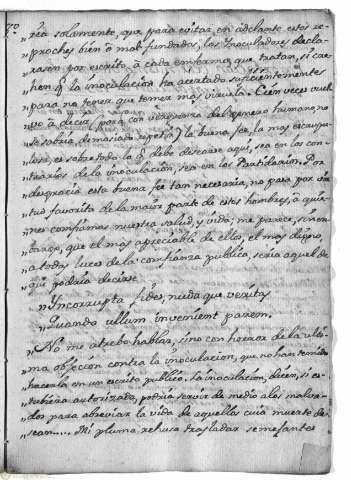 70
„ rea solamente, que para evitar en adelante estos re-
„ proches bien ò mal fundados, los Inoculadores decla-
„ rasen por escrito, à cada enfermo que tratan, si cre-
„ hen q.e la inoculacion ha acertado suficientemente
„ para no tener que temer mas viruela. Cien veces vuel-
„ vo à decir (para con verguenza del genero humano no
„ se podria demasiado repetir) la buena fee, la mas escrupu-
„ losa, es sobre todo lo q.e debe desearse aqui, sea en los con-
„ trarios de la inoculacion, sea en los Partidarios. Por
„ desgracia esta buena fee tan necesaria, no pasa por vir-
„ tud favorita de la maior parte de estos hombres, à quie-
„ nes confiamos nuestra salud, y vida; me parece, sin em-
„ bargo, que el mas apreciable de ellos, el mas digno,
„ a todas luces de la confianza publica, seria aquel de
„ que podria decirse
„ Incorrupta fides, nuda que veritas
„ Quando ullum invenient parem.
„ No me atrebo hablar, sino con horror de la ulti-
„ ma objecion contra la inoculacion, que no han temido
„ hacerla en un escrito publico. La inoculacion, dicen, si es-
„ tubiera autorizada, podria servir de medio a los malva-
„ dos para abreviar la vida de aquellos cuia muerte de-
„ sean..... Mi pluma rehusa trasladar semejantes